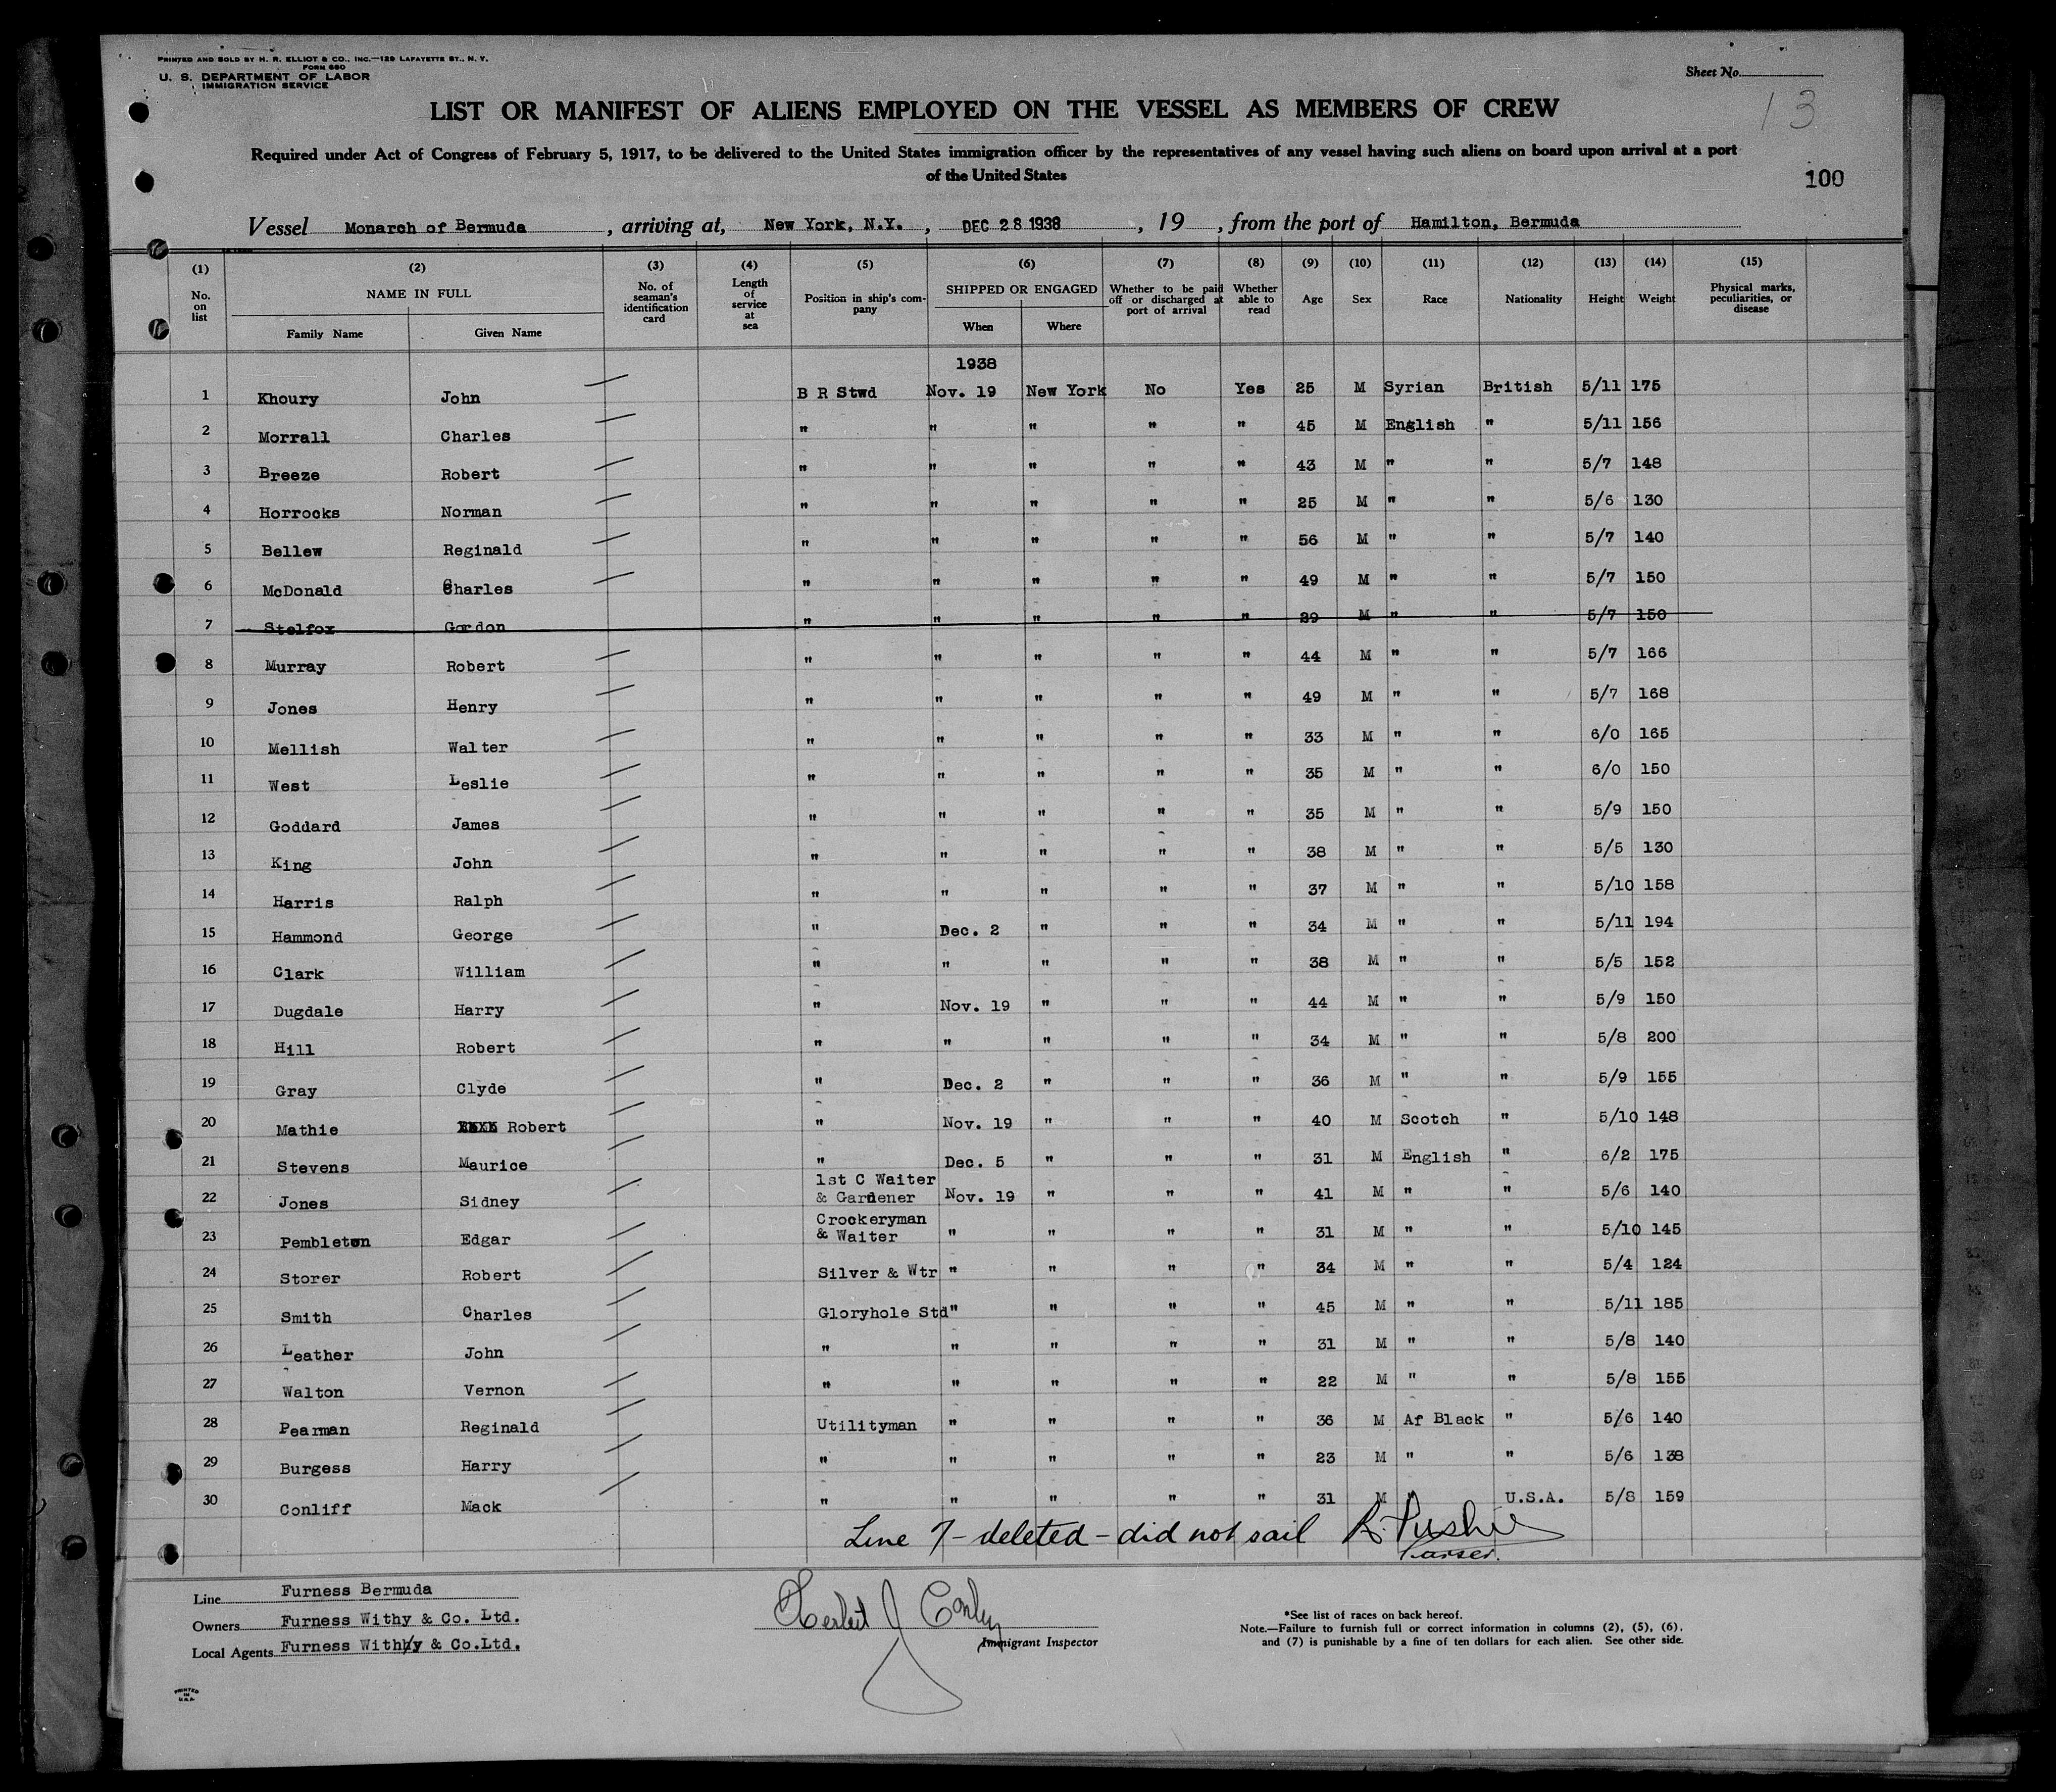 PRINTED AND SOLD BY H. R. ELLIOT & CO., INC.—129 LAFAYETTE ST., N. Y.
FORM 680
U. S. DEPARTMENT OF LABOR
IMMIGRATION SERVICE
Sheet No.
13
LIST OR MANIFEST OF ALIENS EMPLOYED ON THE VESSEL AS MEMBERS OF CREW
Required under Act of Congress of February 5, 1917, to be delivered to the United States immigration officer by the representatives of any vessel having such aliens on board upon arrival at a port
of the United States
100
Vessel Monarch of Bermuda, arriving at, New York, N.Y., DEC 28 1938, 19 , from the port of Hamilton, Bermuda
(1) (2) (3) (4) (5) (6) (7) (8) (9) (10) (11) (12) (13) (14) (15)
No. on list NAME IN FULL Family Name Given Name No. of seaman's identification card Length of service at sea Position in ship's company SHIPPED OR ENGAGED When Where Whether to be paid off or discharged at port of arrival Whether able to read Age Sex Race Nationality Height Weight Physical marks, peculiarities, or disease
1938
1 Khoury John B R Stwd Nov. 19 New York No Yes 25 M Syrian British 5/11 175
2 Morrall Charles " " " " " 45 M English " 5/11 156
3 Breeze Robert " " " " " 43 M " " 5/7 148
4 Horrocks Norman " " " " " 25 M " " 5/6 130
5 Bellew Reginald " " " " " 56 M " " 5/7 140
6 McDonald Charles " " " " " 49 M " " 5/7 150
7 Stelfox Gordon " " " " " 29 M " " 5/7 150
8 Murray Robert " " " " " 44 M " " 5/7 166
9 Jones Henry " " " " " 49 M " " 5/7 168
10 Mellish Walter " " " " " 33 M " " 6/0 165
11 West Leslie " " " " " 35 M " " 6/0 150
12 Goddard James " " " " " 35 M " " 5/9 150
13 King John " " " " " 38 M " " 5/5 130
14 Harris Ralph " " " " " 37 M " " 5/10 158
15 Hammond George " Dec. 2 " " " 34 M " " 5/11 194
16 Clark William " " " " " 38 M " " 5/5 152
17 Dugdale Harry " Nov. 19 " " " 44 M " " 5/9 150
18 Hill Robert " " " " " 34 M " " 5/8 200
19 Gray Clyde " Dec. 2 " " " 36 M " " 5/9 155
20 Mathie Robert " Nov. 19 " " " 40 M Scotch " 5/10 148
21 Stevens Maurice " Dec. 5 " " " 31 M English " 6/2 175
22 Jones Sidney 1st C Waiter & Gardener Nov. 19 " " " 41 M " " 5/6 140
23 Pembleton Edgar Crockeryman & Waiter " " " " 31 M " " 5/10 145
24 Storer Robert Silver & Wtr " " " " 34 M " " 5/4 124
25 Smith Charles Gloryhole Std " " " " 45 M " " 5/11 185
26 Leather John " " " " " 31 M " " 5/8 140
27 Walton Vernon " " " " " 22 M " " 5/8 155
28 Pearman Reginald Utilityman " " " " 36 M Af Black " 5/6 140
29 Burgess Harry " " " " " 23 M " " 5/6 138
30 Conliff Mack " " " " " 31 M " U.S.A. 5/8 159
Line 7 - deleted - did not sail
Purser.
Line Furness Bermuda
Owners Furness Withy & Co. Ltd.
Local Agents Furness Withy & Co.Ltd.
Herbert J Conley
Immigrant Inspector
*See list of races on back hereof.
Note.—Failure to furnish full or correct information in columns (2), (5), (6),
and (7) is punishable by a fine of ten dollars for each alien. See other side.
PRINTED
IN
U.S.A.